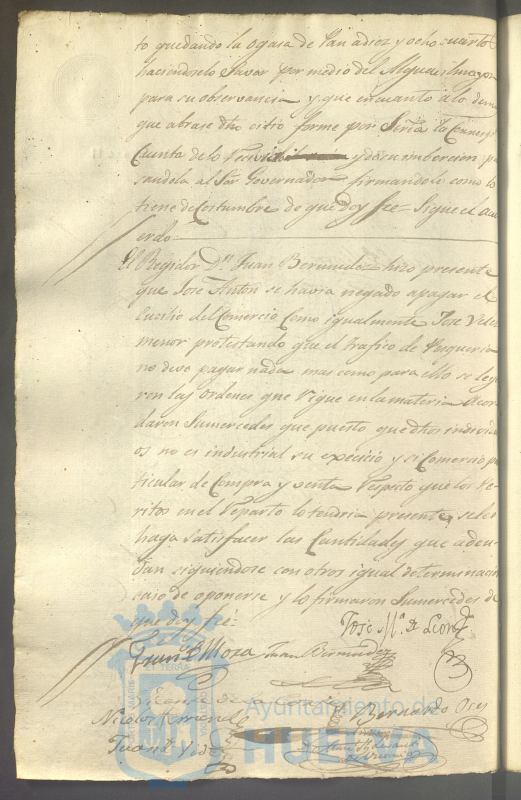 to quedando la ogasa de Pan adiez y ocho cuartos
haciendoselo Savar por medio del Alguacil mayor
para su observancia y que en cuanto alo demas
que abrase dho citio forme por Seria la
Cuenta de lo y desembercion
sandola al Sor Governador firmandolo como lo
tiene de Costumbre de que doy fee= Sigue el acu
erdo=
El Regidor Dn Juan Bermudez hizo presente
que José Anton se havia negado apagar el
Cucilio del Comercio Como igualmente José Velez
menor protestando que el trafico de Pesqueria
no deve pagar nada mas como para ello se leye
ron las Ordenes que rigue en la materia Acor
daron Sumercedes que puesto que dhos individu
os no es industrial su exécicio y si Comercio par
ticular de Compra y venta respecto que los Pe
ritos en el reparto lo tendria presente, se les
haga satisfacer las Cantidades que adeu
dan siguiendose con otros igual determinacion
caso de oponerse y lo firmaron Sumercedes de
que doy fee=
José Ma de Leon
Franco Mora Juan Bermudez
Bernardo
Nicolas
Juan
Ayuntamiento de
HUELVA